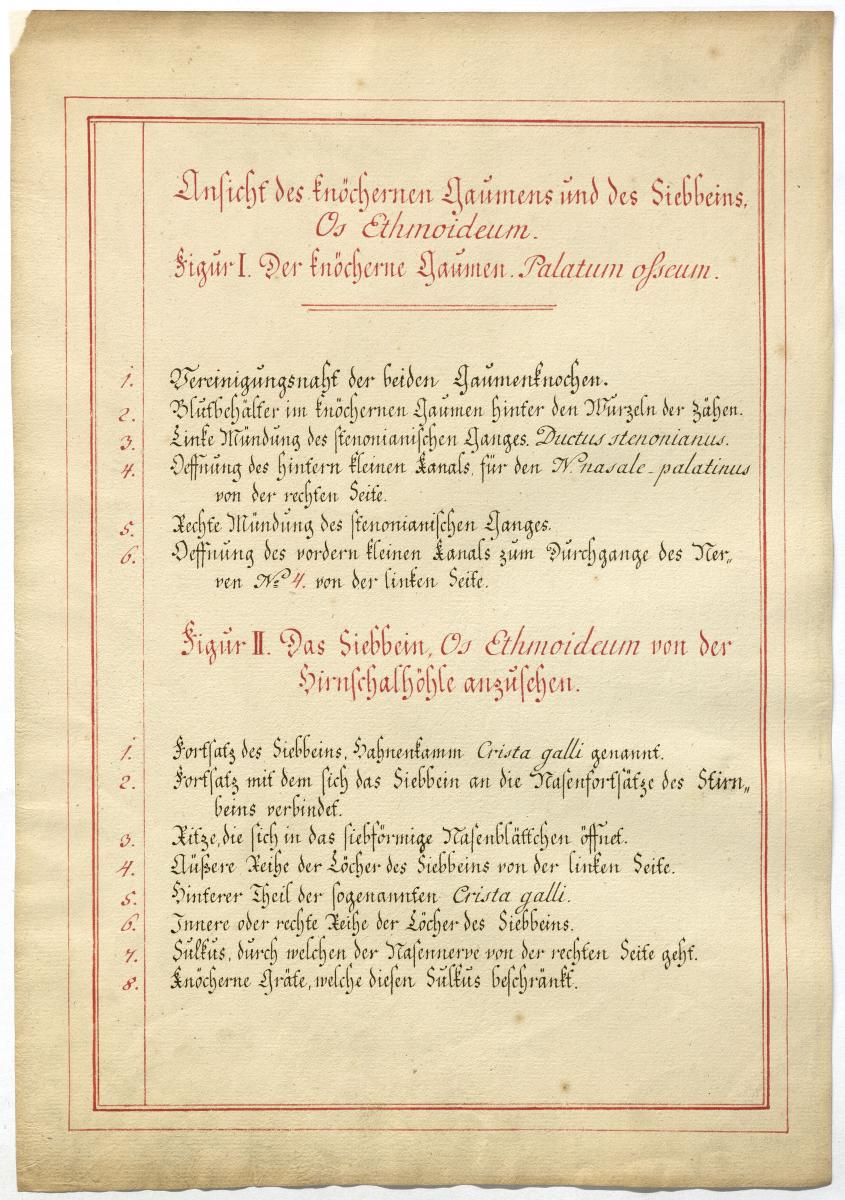 Ansicht des knöchernen Gaumens und des Siebbeins,
Os Ethmoideum.
Figur I. Der knöcherne Gaumen. Palatum osseum.
1. Vereinigungsnaht der beiden Gaumenknochen.
2. Blutbehälter im knöchernen Gaumen hinter den Wurzeln der Zähen.
3. Linke Mündung des stenonianischen Ganges. Ductus stenonianus.
4. Oeffnung des hintern kleinen Kanals, für den N. nasale-palatinus
von der rechten Seite.
5. Rechte Mündung des stenonianischen Ganges.
6. Oeffnung des vordern kleinen Kanals zum Durchgange des Ner„
ven No 4. von der linken Seite.
Figur II. Das Siebbein, Os Ethmoideum von der
Hirnschalhöhle anzusehen.
1. Fortsatz des Siebbeins, Hahnenkamm Crista galli genannt.
2. Fortsatz mit dem sich das Siebbein an die Nasenfortsätze des Stirn„
beins verbindet.
3. Ritze, die sich in das siebförmige Nasenblättchen öffnet.
4. Äußere Reihe der Löcher des Siebbeins von der linken Seite.
5. Hinterer Theil der sogenannten Crista galli.
6. Innere oder rechte Reihe der Löcher des Siebbeins.
7. Sulkus, durch welchen der Nasennerve von der rechten Seite geht.
8. Knöcherne Gräte, welche diesen Sulkus beschränkt.